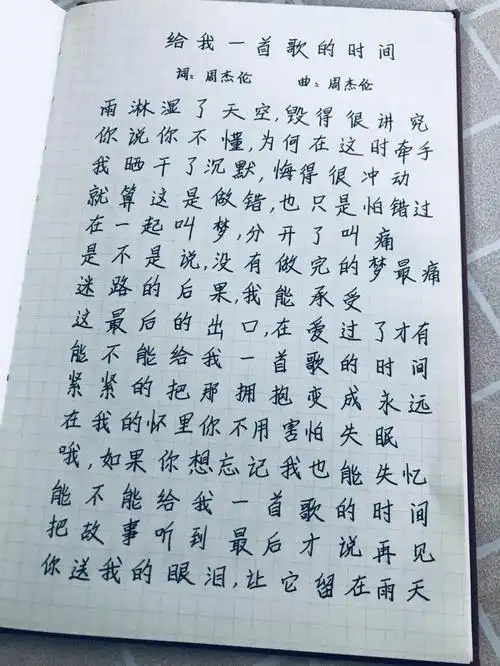 给我一首歌的时间
词：周杰伦 曲：周杰伦
雨淋湿了天空,毁得很讲究
你说你不懂,为何在这时牵手
我晒干了沉默,悔得很冲动
就算这是做错,也只是怕错过
在一起叫梦,分开了叫痛
是不是说,没有做完的梦最痛
迷路的后果,我能承受
这最后的出口,在爱过了才有
能不能给我一首歌的时间
紧紧的把那拥抱变成永远
在我的怀里你不用害怕失眠
哦,如果你想忘记我也能失忆
能不能给我一首歌的时间
把故事听到最后才说再见
你送我的眼泪,让它留在雨天